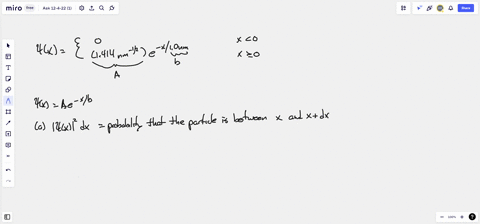 miro free Ask 12-4-22 (1) Share
ψ(x) = { 0 x < 0
(1.414 nm^-1/2) e^-x/1.0nm x ≥ 0
A b
ψ(x) = A e^-x/b
(a) |ψ(x)|² dx = probability that the particle is between x and x+dx